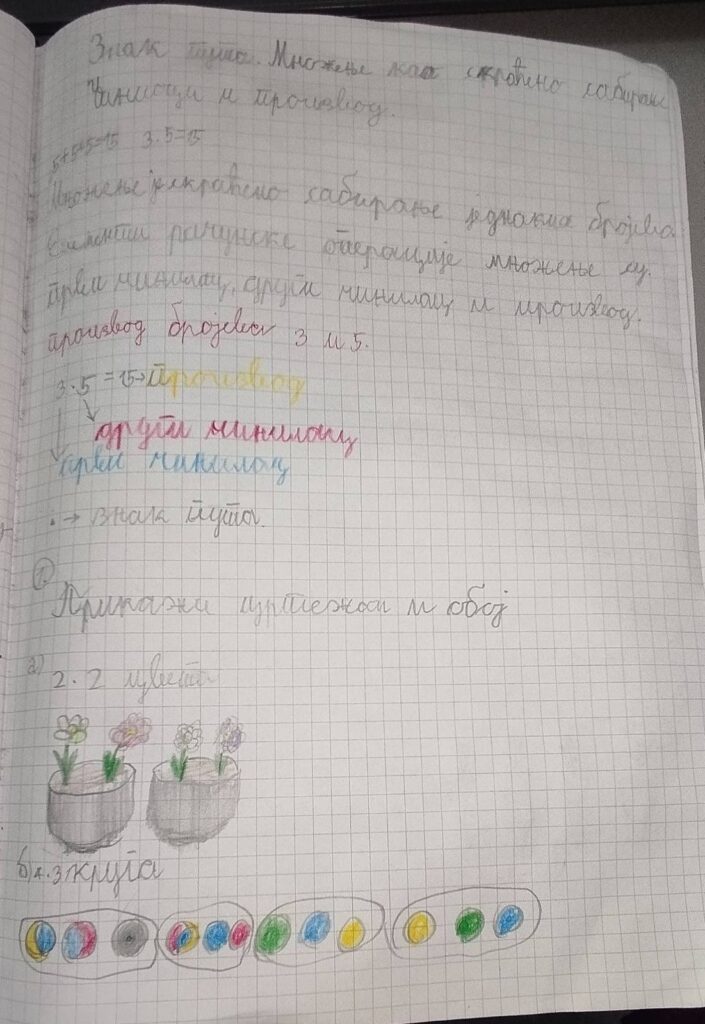 Знак пута. Множење као скраћено сабирање
Чиниоци и производ.
5+5+5=15 3·5=15
Множење је скраћено сабирање једнаких бројева
Елементи рачунске операције множење су:
први чинилац, други чинилац и производ.
производ бројева 3 и 5.
3·5=15→производ
други чинилац
први чинилац
·→ знак пута.
1.
Прикажи цртежом и обој
а) 2·2 цвета
б) 4·3 круга